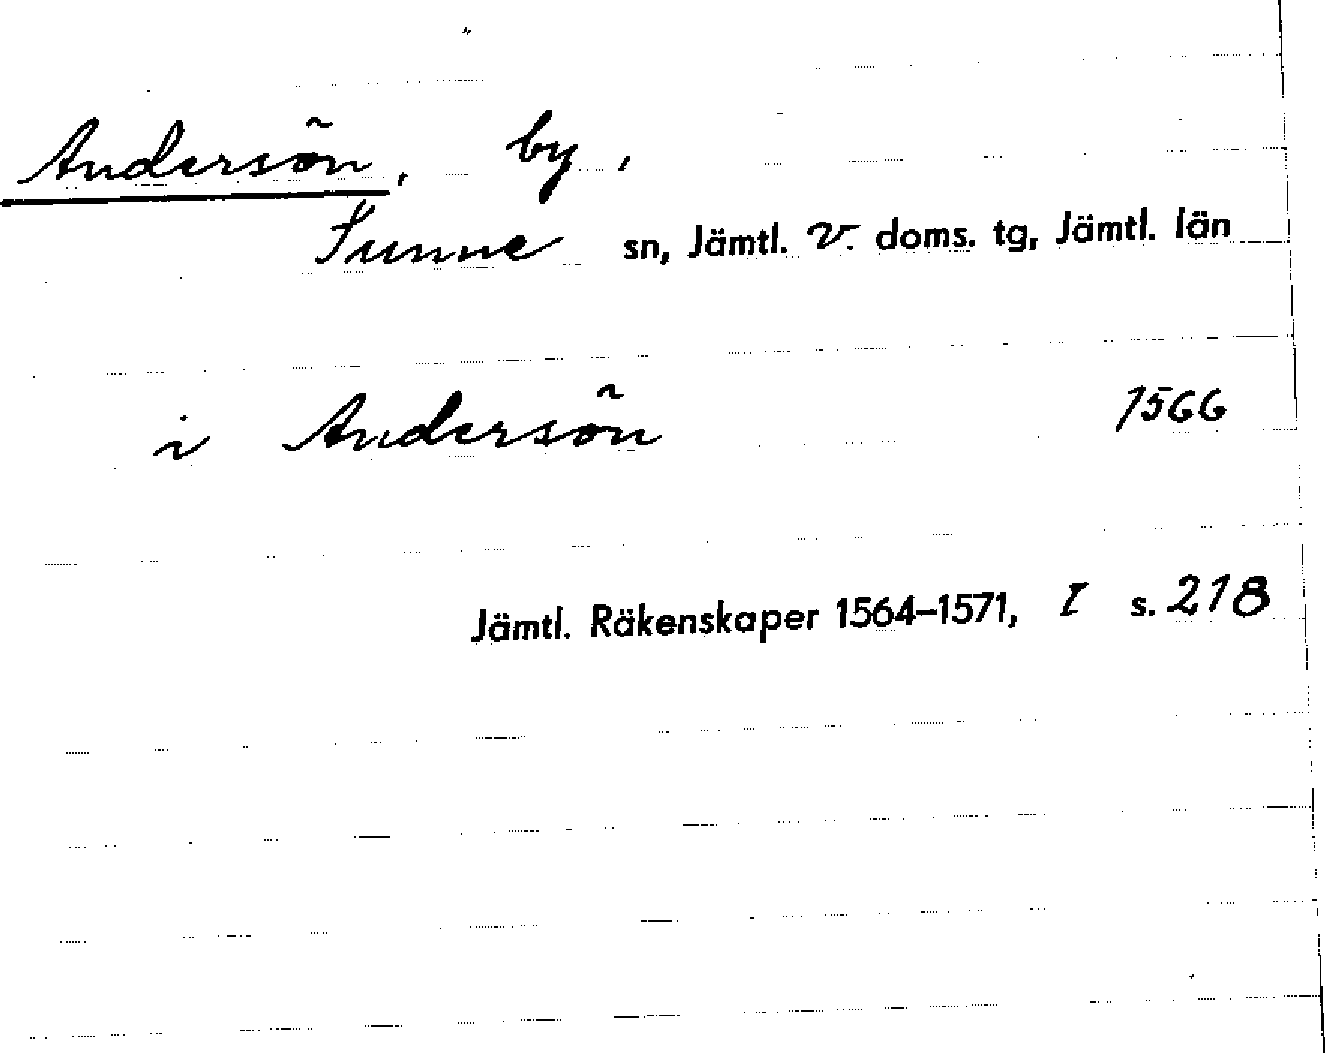 Andersön, by,
Sunne sn, Jämtl. v. doms. tg, Jämtl. län
i Andersön 1566
Jämtl. Räkenskaper 1564–1571, I s. 218